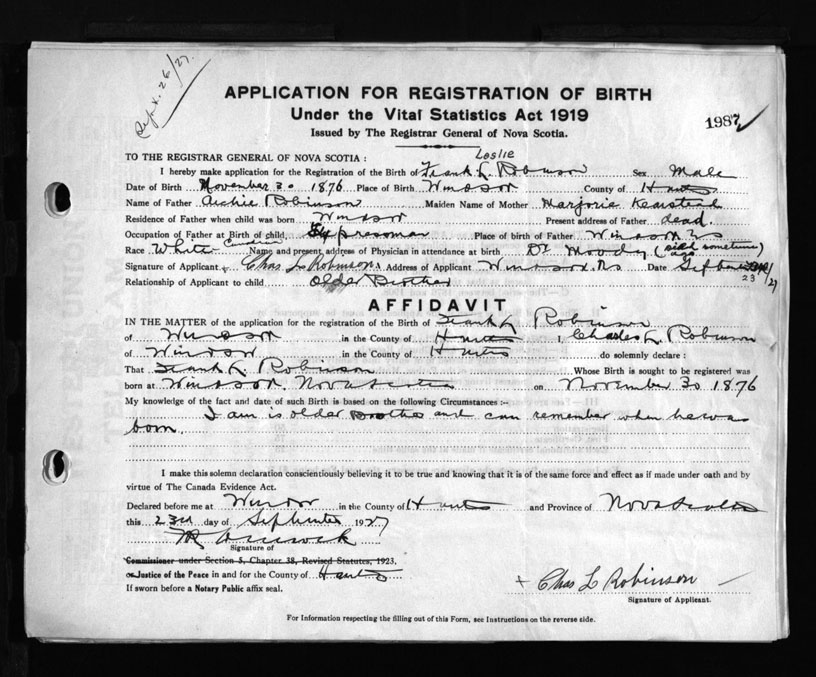 Sept. 26/27.
APPLICATION FOR REGISTRATION OF BIRTH
Under the Vital Statistics Act 1919
1987
Issued by The Registrar General of Nova Scotia.
Leslie
TO THE REGISTRAR GENERAL OF NOVA SCOTIA :
I hereby make application for the Registration of the Birth of Frank L. Robinson Sex Male
Date of Birth November 30 1876 Place of Birth Windsor County of Hants
Name of Father Archie Robinson Maiden Name of Mother Marjorie
Residence of Father when child was born Windsor Present address of Father dead.
Occupation of Father at Birth of child pressman Place of birth of Father Windsor NS
Race White Canadian Name and present address of Physician in attendance at birth Dr Moody (died sometime ago)
Signature of Applicant Chas L Robinson Address of Applicant Windsor, NS Date 23 /27
Relationship of Applicant to child older Brother
AFFIDAVIT
IN THE MATTER of the application for the registration of the Birth of Frank L Robinson
of Windsor in the County of Hants I, Charles L Robinson
of Windsor in the County of Hants do solemnly declare :
That Frank L Robinson Whose Birth is sought to be registered was
born at Windsor, Nova Scotia on November 30 1876
My knowledge of the fact and date of such Birth is based on the following Circumstances :-
I am is older Brother and can remember when he was
born.
I make this solemn declaration conscientiously believing it to be true and knowing that it is of the same force and effect as if made under oath and by
virtue of The Canada Evidence Act.
Declared before me at Windsor in the County of Hants and Province of Nova Scotia
this 23rd day of September 1927
Signature of
Commissioner under Section 5, Chapter 38, Revised Statutes, 1923,
or Justice of the Peace in and for the County of Hants
+ Chas L Robinson
If sworn before a Notary Public affix seal.
Signature of Applicant.
For Information respecting the filling out of this Form, see Instructions on the reverse side.